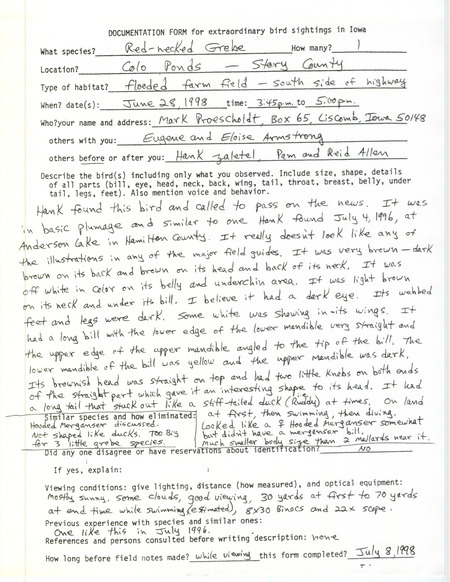 DOCUMENTATION FORM for extraordinary bird sightings in Iowa
What species? Red-necked Grebe How many? 1
Location? Colo Ponds - Story County
Type of habitat? flooded farm field - south side of highway
When? date(s): June 28, 1998 time: 3:45 p.m. to 5:00 p.m.
Who?your name and address: Mark Proescholdt, Box 65, Liscomb, Iowa 50148
others with you: Eugene and Eloise Armstrong
others before or after you: Hank Zaletel, Pam and Reid Allen
Describe the bird(s) including only what you observed. Include size, shape, details
of all parts (bill, eye, head, neck, back, wing, tail, throat, breast, belly, under
tail, legs, feet). Also mention voice and behavior.
Hank found this bird and called to pass on the news. It was
in basic plumage and similar to one Hank found July 4, 1996, at
Anderson Lake in Hamilton County. It really doesn't look like any of
the illustrations in any of the major field guides. It was very brown - dark
brown on its back and brown on its head and back of its neck. It was
off white in color on its belly and underchin area. It was light brown
on its neck and under its bill. I believe it had a dark eye. Its webbed
feet and legs were dark. Some white was showing in its wings. It
had a long bill with the lower edge of the lower mandible very straight and
the upper edge of the upper mandible angled to the tip of the bill. The
lower mandible of the bill was yellow and the upper mandible was dark.
Its brownish head was straight on top and had two little knobs on both ends
of the straight part which gave it an interesting shape to its head. It had
a long tail that stuck out like a stiff-tailed duck (Ruddy) at times. On land
at first, then swimming, then diving.
Looked like a ♀ Hooded Merganser somewhat
but didn't have a merganser bill.
Much smaller body size than 2 mallards near it.
Similar species and how eliminated:
Hooded Merganser discussed.
Not shaped like ducks. Too Big
for 3 little grebe species.
Did any one disagree or have reservations about identification? NO
If yes, explain:
Viewing conditions: give lighting, distance (how measured), and optical equipment:
Mostly sunny, some clouds, good viewing, 30 yards at first to 70 yards
at end time while swimming (estimated), 8x30 Binocs and 22x scope.
Previous experience with species and similar ones:
One like this in July 1996.
References and persons consulted before writing description: none
How long before field notes made? while viewing this form completed? July 8, 1998